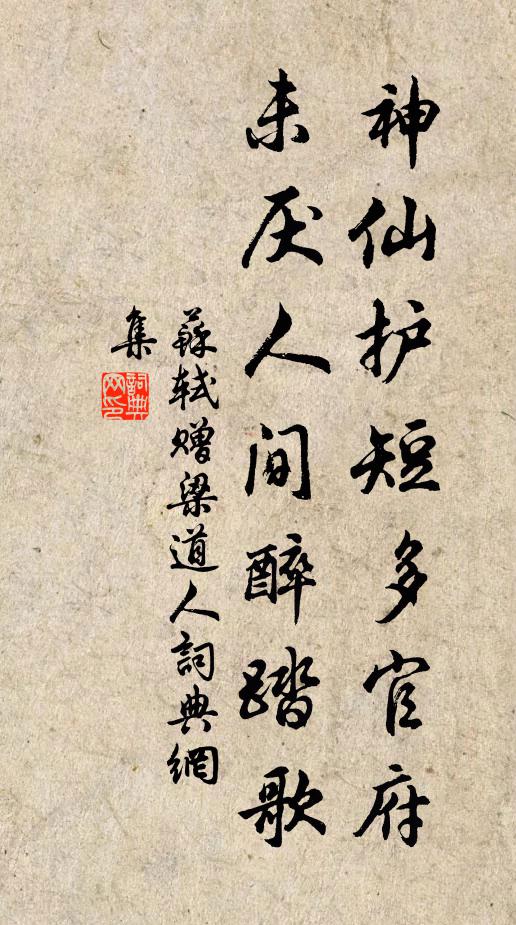 神仙护短多官府
未厌人间醉踏歌
蘇軾赠梁道人詞典網
集
詞典
网印